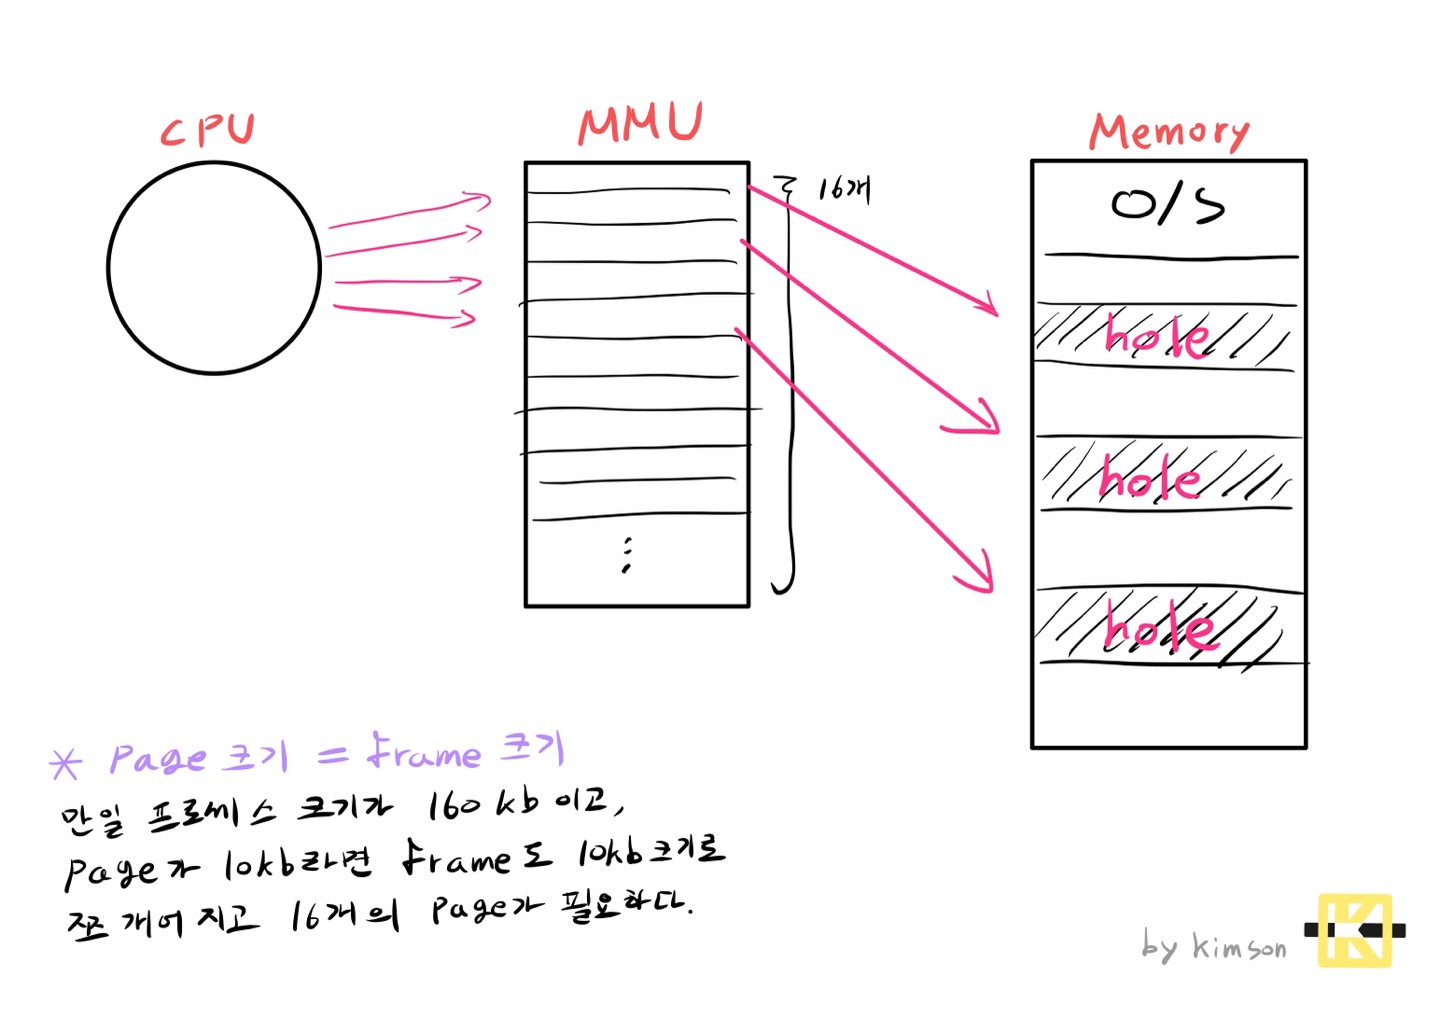 CPU
MMU
Memory
16개
O/S
hole
hole
hole
* Page 크기 = frame 크기
만일 프로쎄스 크기가 160kb 이고,
Page가 10kb라면 frame도 10kb크기로
쪼개어 지고 16개의 Page가 필요하다.
by kimson
K